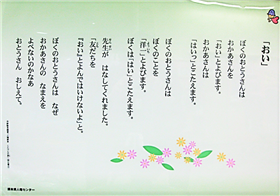 「おい」
ぼくのおとうさんは
おかあさんを
「おい」とよびます。
おかあさんは
「はいっ」とこたえます。
ぼくのおとうさんは
ぼくのことを
「洋一」とよびます。
ぼくは「はい」とこたえます。
先生が はなしてくれました。
「友だちを
「おい」とよんではいけないよ」と。
ぼくのおとうさんは なぜ
おかあさんの なまえを
よべないのかなあ
おとうさん おしえて。